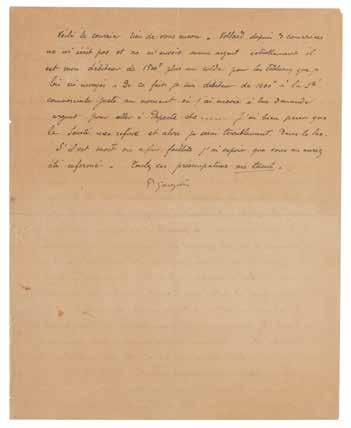 Voilà le courrier rien de vous encore. Vollard depuis 3 courriers
ne m'écrit pas et ne m'envoie aucun argent actuellement il
est mon débiteur de 1500f plus un solde pour les tableaux que je
lui ai envoyés. De ce fait je suis débiteur de 1600f à la Sté
commerciale juste au moment où j'ai encore à lui demander
argent pour aller à Papeete etc...... j'ai bien peur que
la Santé me refuse et alors je serai terriblement dans le lac.
S'il est mort ou a fait faillite j'ai espoir que vous en aurez
été informé. Toutes ces préoccupations me tuent.
P Gauguin